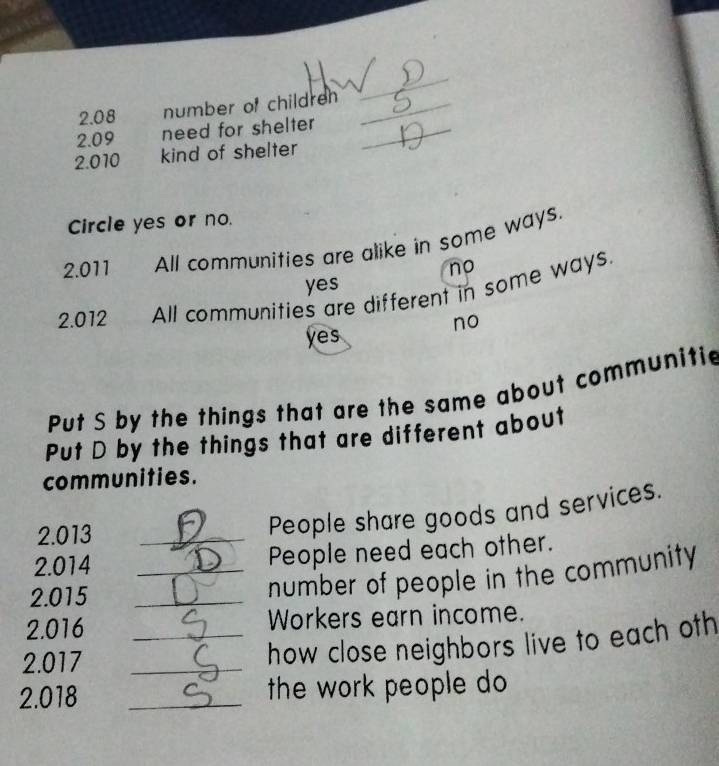 HW D
2.08 number of children
2.09 need for shelter S
2.010 kind of shelter D
Circle yes or no.
2.011 All communities are alike in some ways.
yes no
2.012 All communities are different in some ways.
yes no
Put S by the things that are the same about communitie
Put D by the things that are different about
communities.
2.013 D People share goods and services.
2.014 D People need each other.
2.015 D number of people in the community
2.016 S Workers earn income.
2.017 S how close neighbors live to each oth
2.018 S the work people do